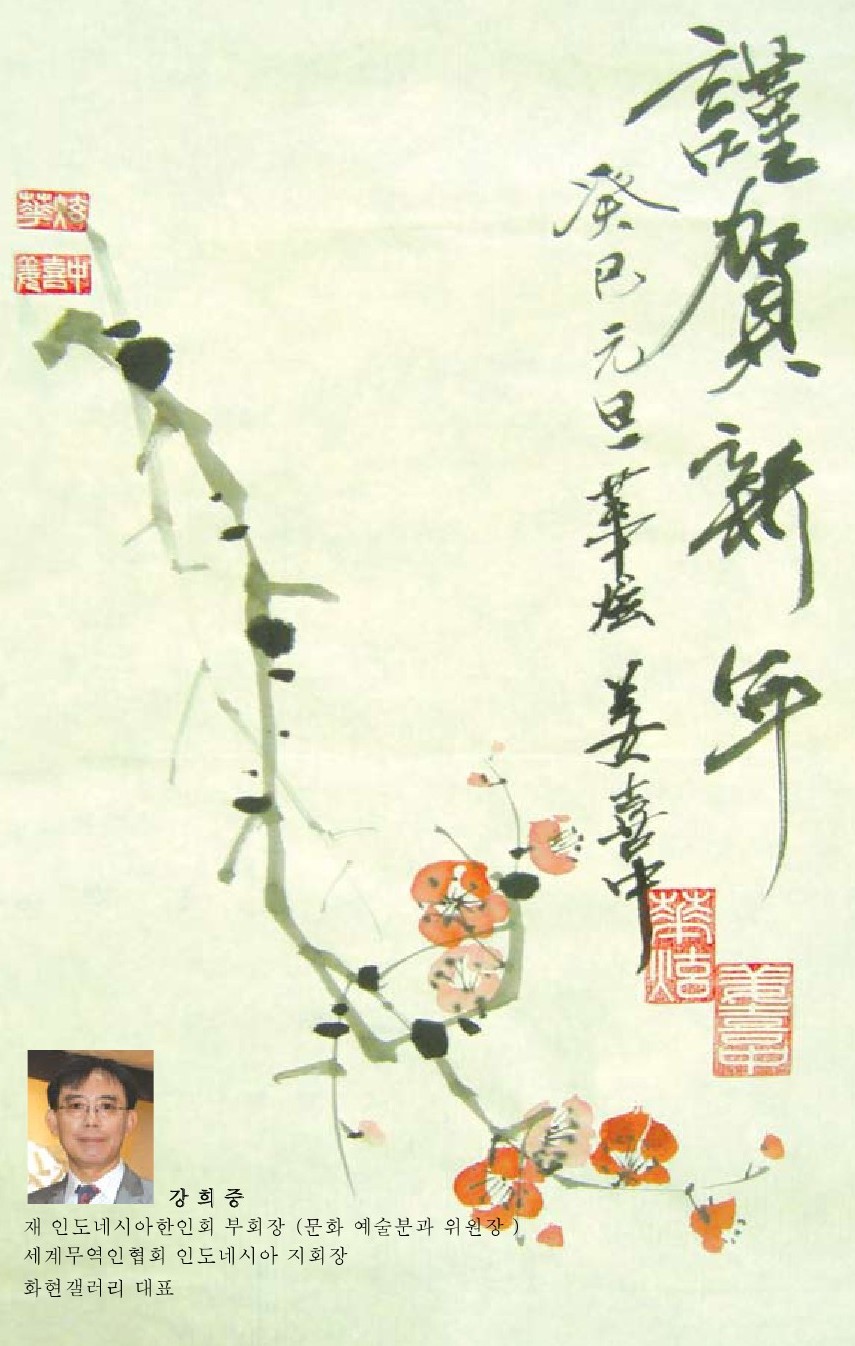 謹賀新年
癸巳元旦 華炫 姜喜中
華炫
姜喜中
華炫
姜喜中
강 희 중
재 인도네시아한인회 부회장 (문화 예술분과 위원장 )
세계무역인협회 인도네시아 지회장
화현갤러리 대표